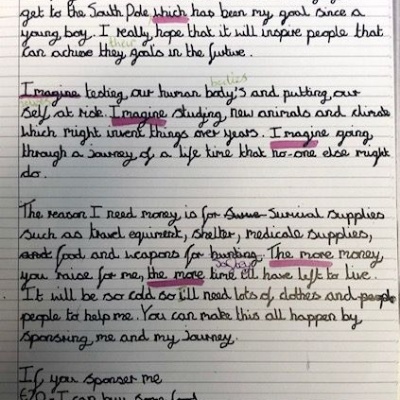 get to the South Pole which has been my goal since a
young boy. I really hope that it will inspire people that
their
can achieve they goals in the future.
bodies
I magine testing our human body's and putting our
self at risk. I magine studing new animals and climate
which might invent things over years. I magine going
through a journey of a life time that no-one else might
do.
The reason I need money is for Survival supplies
such as travel equiment, shelter, medicale supplies,
and food and weapons for hunting. The more money
you raise for me, the more time ill have left to live.
It will be so cold so ill need lots of clothes and people
people to help me. You can make this all happen by
sponsring me and my journey.
If you sponser me
£20 - I can buy some food